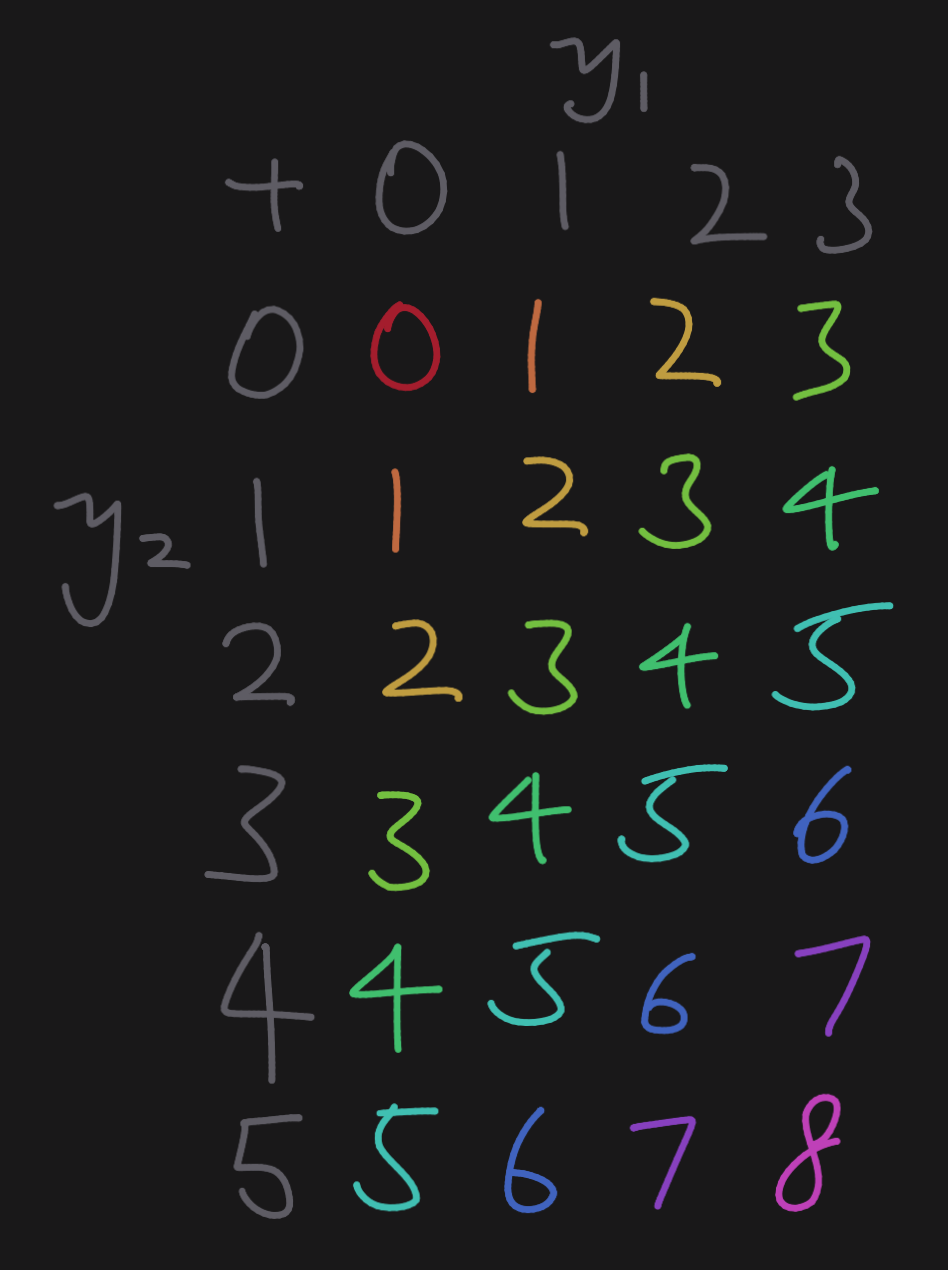 y₁
+ 0 1 2 3
0 0 1 2 3
y₂ 1 1 2 3 4
2 2 3 4 5
3 3 4 5 6
4 4 5 6 7
5 5 6 7 8